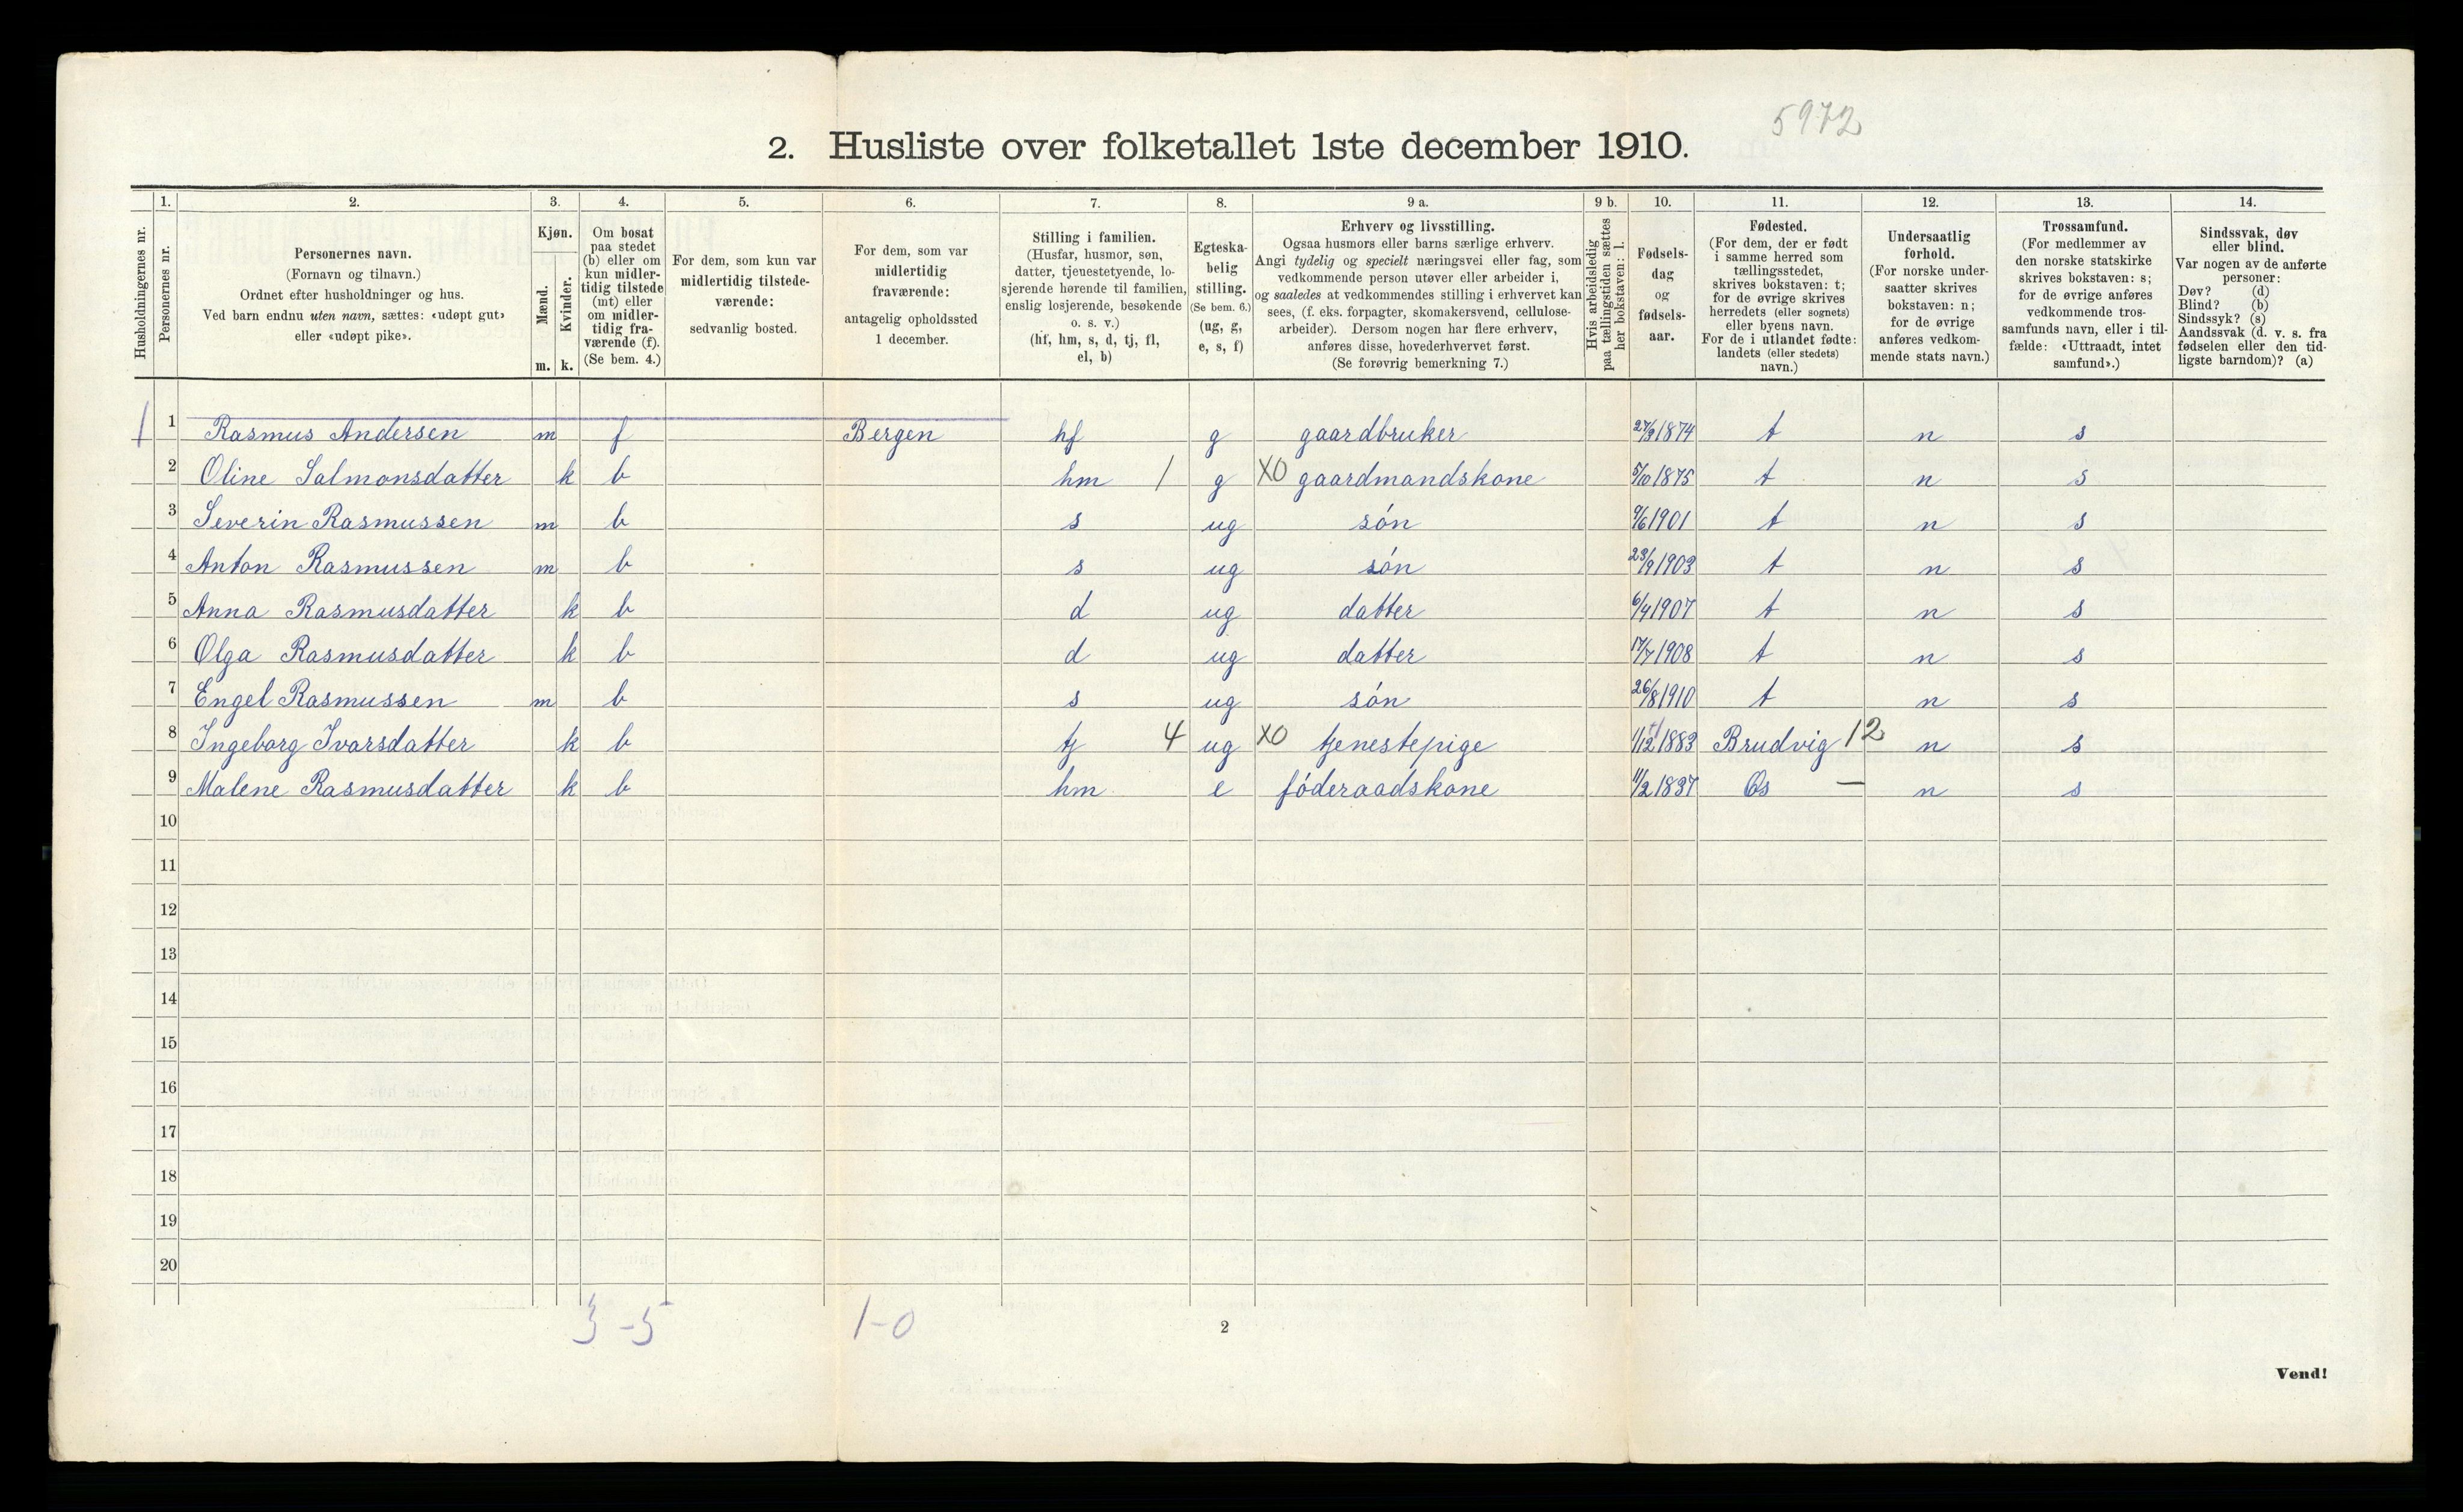 5972
2. Husliste over folketallet 1ste december 1910.
Husholdningernes nr.
1.
Personernes nr.
2.
Personernes navn.
(Fornavn og tilnavn.)
Ordnet efter husholdninger og hus.
Ved barn endnu uten navn, sættes: «udøpt gut»
eller «udøpt pike».
3.
Kjøn.
Mænd.
Kvinder.
m. k.
4.
Om bosat
paa stedet
(b) eller om
kun midler-
tidig tilstede
(mt) eller
om midler-
tidig fra-
værende (f).
(Se bem. 4.)
5.
For dem, som kun var
midlertidig tilstede-
værende:
sedvanlig bosted.
6.
For dem, som var
midlertidig
fraværende:
antagelig opholdssted
1 december.
7.
Stilling i familien.
(Husfar, husmor, søn,
datter, tjenestetyende, lo-
sjerende hørende til familien,
enslig losjerende, besøkende
o. s. v.)
(hf, hm, s, d, tj, fl,
el, b)
8.
Egteska-
belig
stilling.
(Se bem. 6.)
(ug, g,
e, s, f)
9 a.
Erhverv og livsstilling.
Ogsaa husmors eller barns særlige erhverv.
Angi tydelig og specielt næringsvei eller fag, som
vedkommende person utøver eller arbeider i,
og saaledes at vedkommendes stilling i erhvervet kan
sees, (f. eks. forpagter, skomakersvend, cellulose-
arbeider). Dersom nogen har flere erhverv,
anføres disse, hovederhvervet først.
(Se forøvrig bemerkning 7.)
9 b.
Hvis arbeidsledig
paa tællingstiden sættes
her bokstaven: l.
10.
Fødsels-
dag
og
fødsels-
aar.
11.
Fødested.
(For dem, der er født
i samme herred som
tællingsstedet,
skrives bokstaven: t;
for de øvrige skrives
herredets (eller sognets)
eller byens navn.
For de i utlandet fødte:
landets (eller stedets)
navn.)
12.
Undersaatlig
forhold.
(For norske under-
saatter skrives
bokstaven: n;
for de øvrige
anføres vedkom-
mende stats navn.)
13.
Trossamfund.
(For medlemmer av
den norske statskirke
skrives bokstaven: s;
for de øvrige anføres
vedkommende tros-
samfunds navn, eller i til-
fælde: «Uttraadt, intet
samfund».)
14.
Sindssvak, døv
eller blind.
Var nogen av de anførte
personer:
Døv? (d)
Blind? (b)
Sindssyk? (s)
Aandssvak (d. v. s. fra
fødselen eller den tid-
ligste barndom)? (a)
1 1 Rasmus Andersen m f Bergen hf g gaardbruker 1874 t n s
2 Oline Salmonsdatter k b hm 1 g XO gaardmandskone 5/10 1875 t n s
3 Severin Rasmussen m b s ug són 9/6 1901 t n s
4 Anton Rasmussen m b s ug són 23/9 1903 t n s
5 Anna Rasmusdatter k b d ug datter 6/4 1907 t n s
6 Olga Rasmusdatter k b d ug datter 17/7 1908 t n s
7 Engel Rasmussen m b s ug són 26/8 1910 t n s
8 Ingeborg Ivarsdatter k b tj 4 ug XO tjenestepige 1883 Brudvig 12 n s
9 Malene Rasmusdatter k b hm e fóderaadskone 11/2 1837 Os — n s
10
11
12
13
14
15
16
17
18
19
20
3-5 1-0
2
Vend!